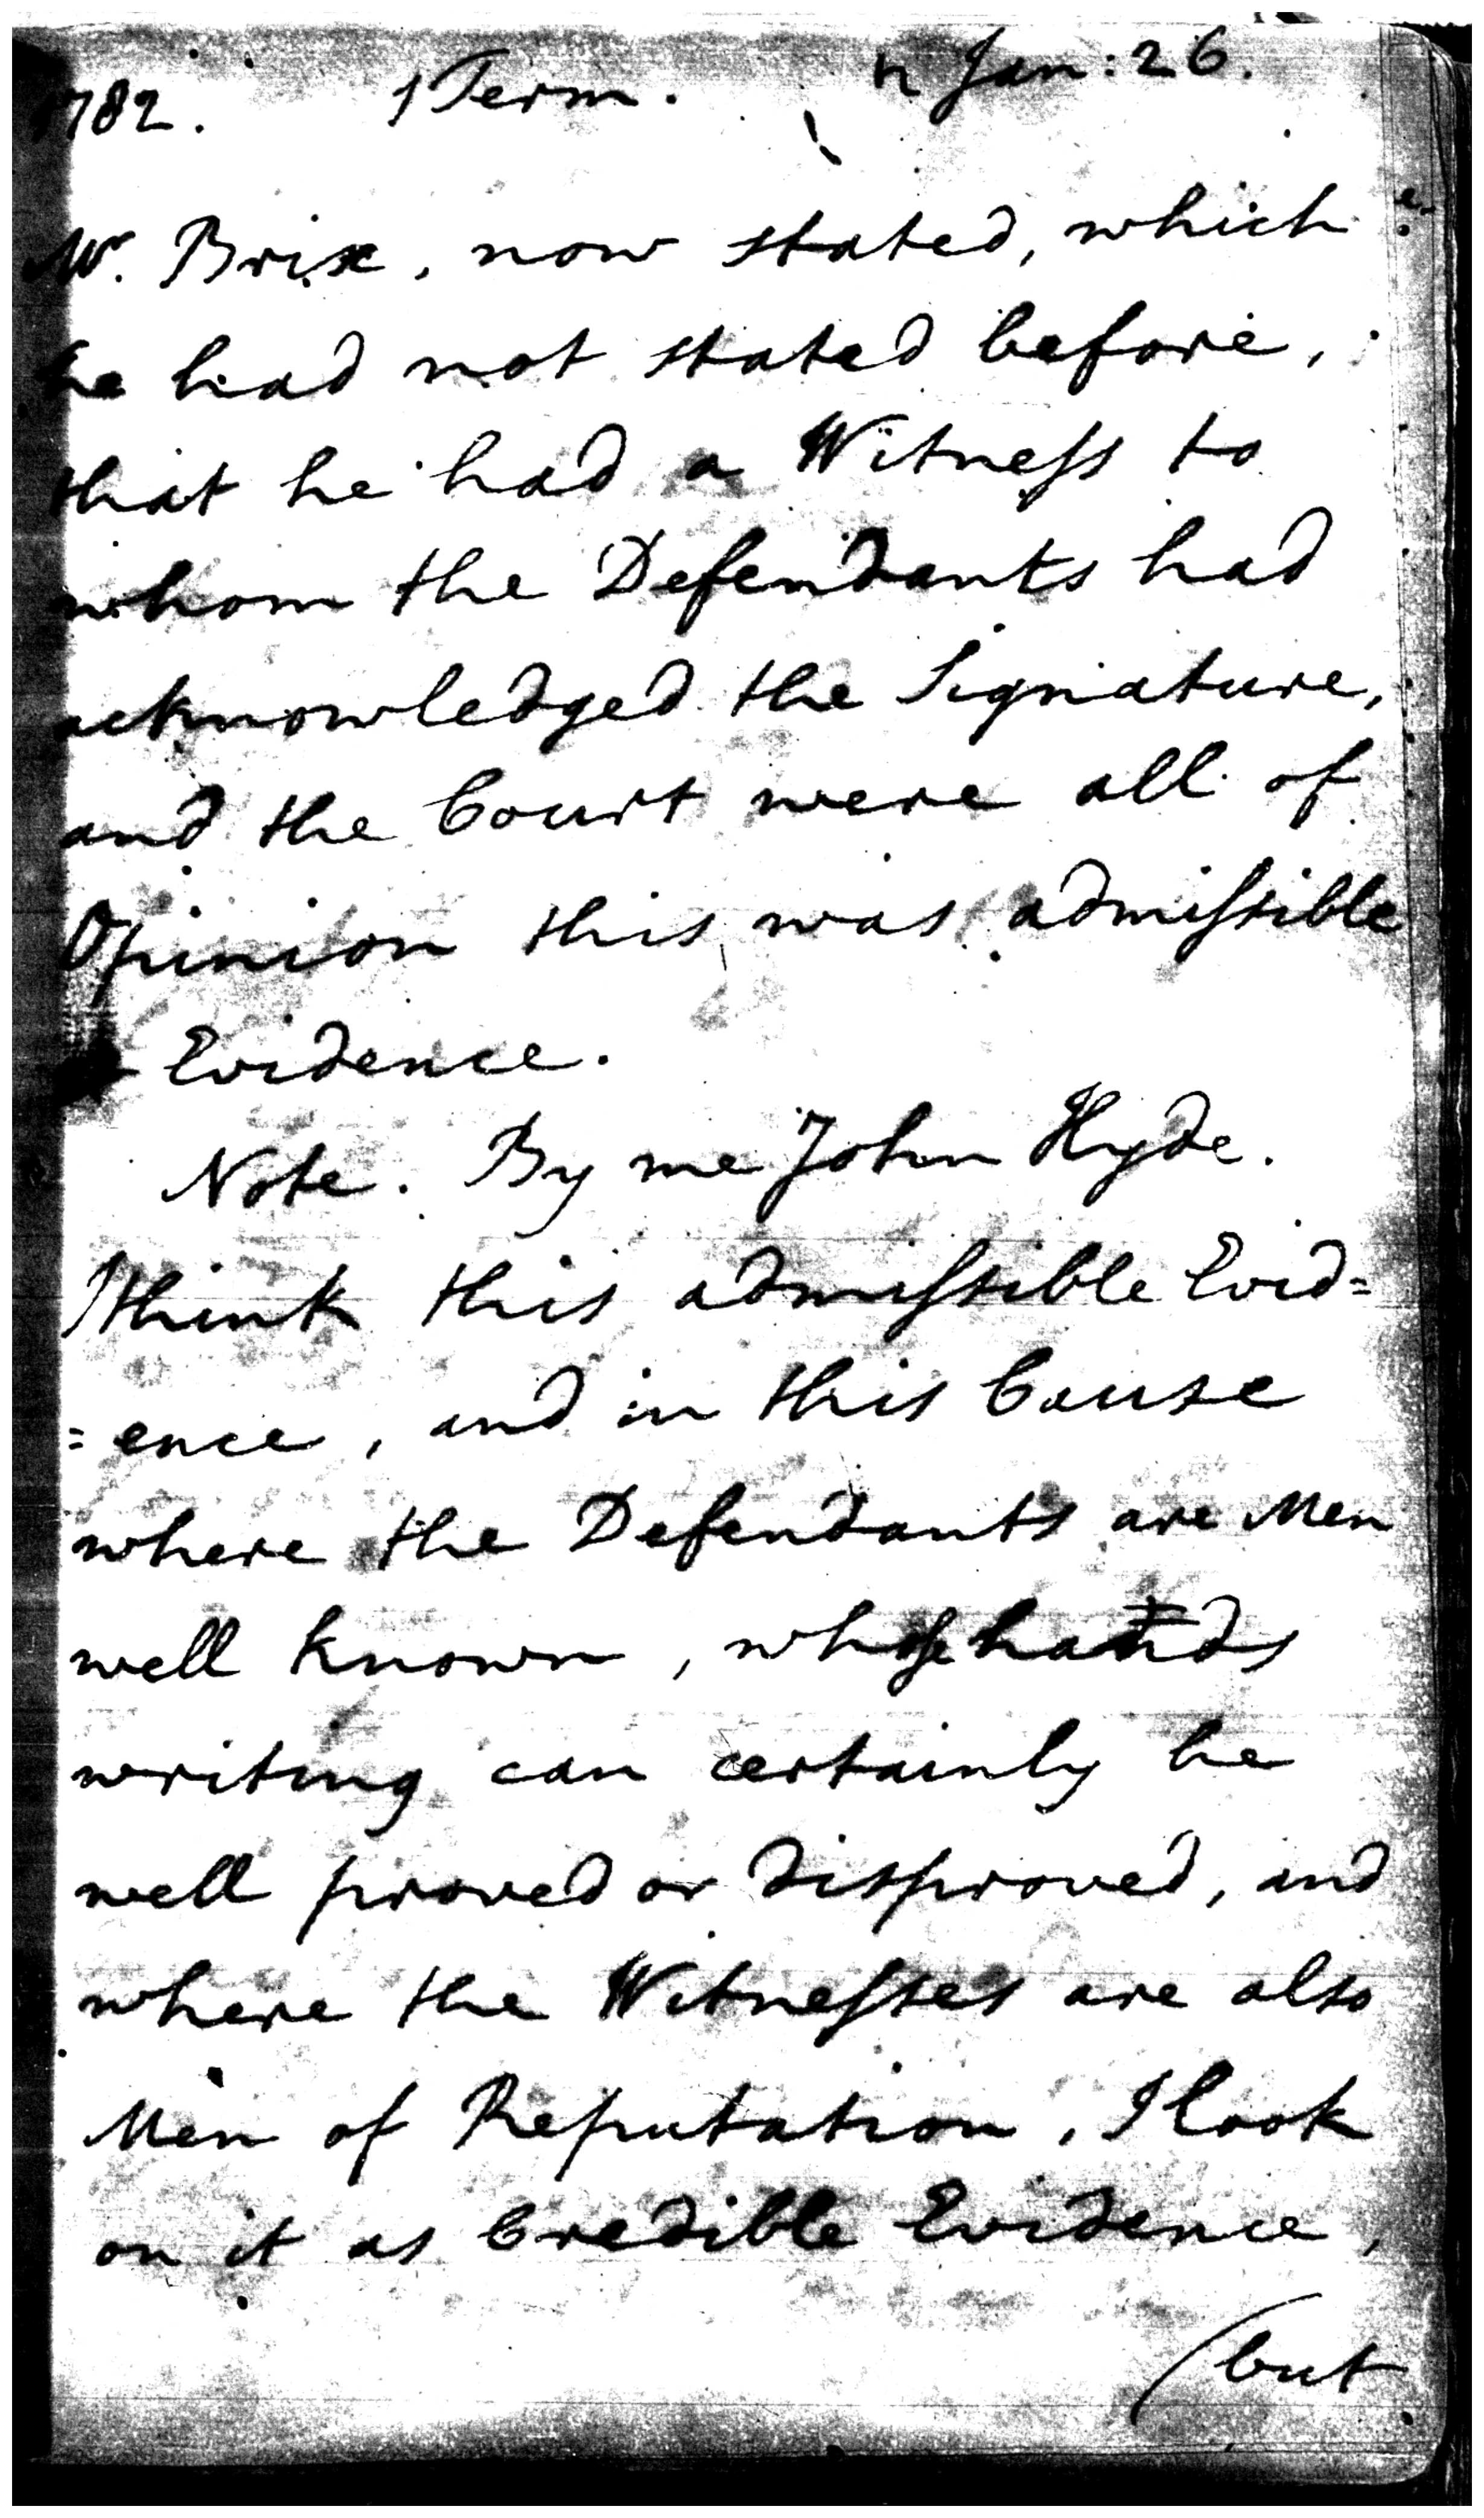 1782. 1 Term. n Jan: 26.
Mr. Brix, now stated, which
he had not stated before,
that he had a Witneſs to
whom the Defendants had
acknowledged the Signature,
and the Court were all of
Opinion this was admiſsible
Evidence.
Note. By me John Hyde.
I think this admiſsible Evid=
=ence, and in this Cause
where the Defendants are Men
well known, whose hands
writing can certainly be
well proved or disproved, and
where the Witneſses are also
Men of Reputation, I look
on it as Credible Evidence,
(but